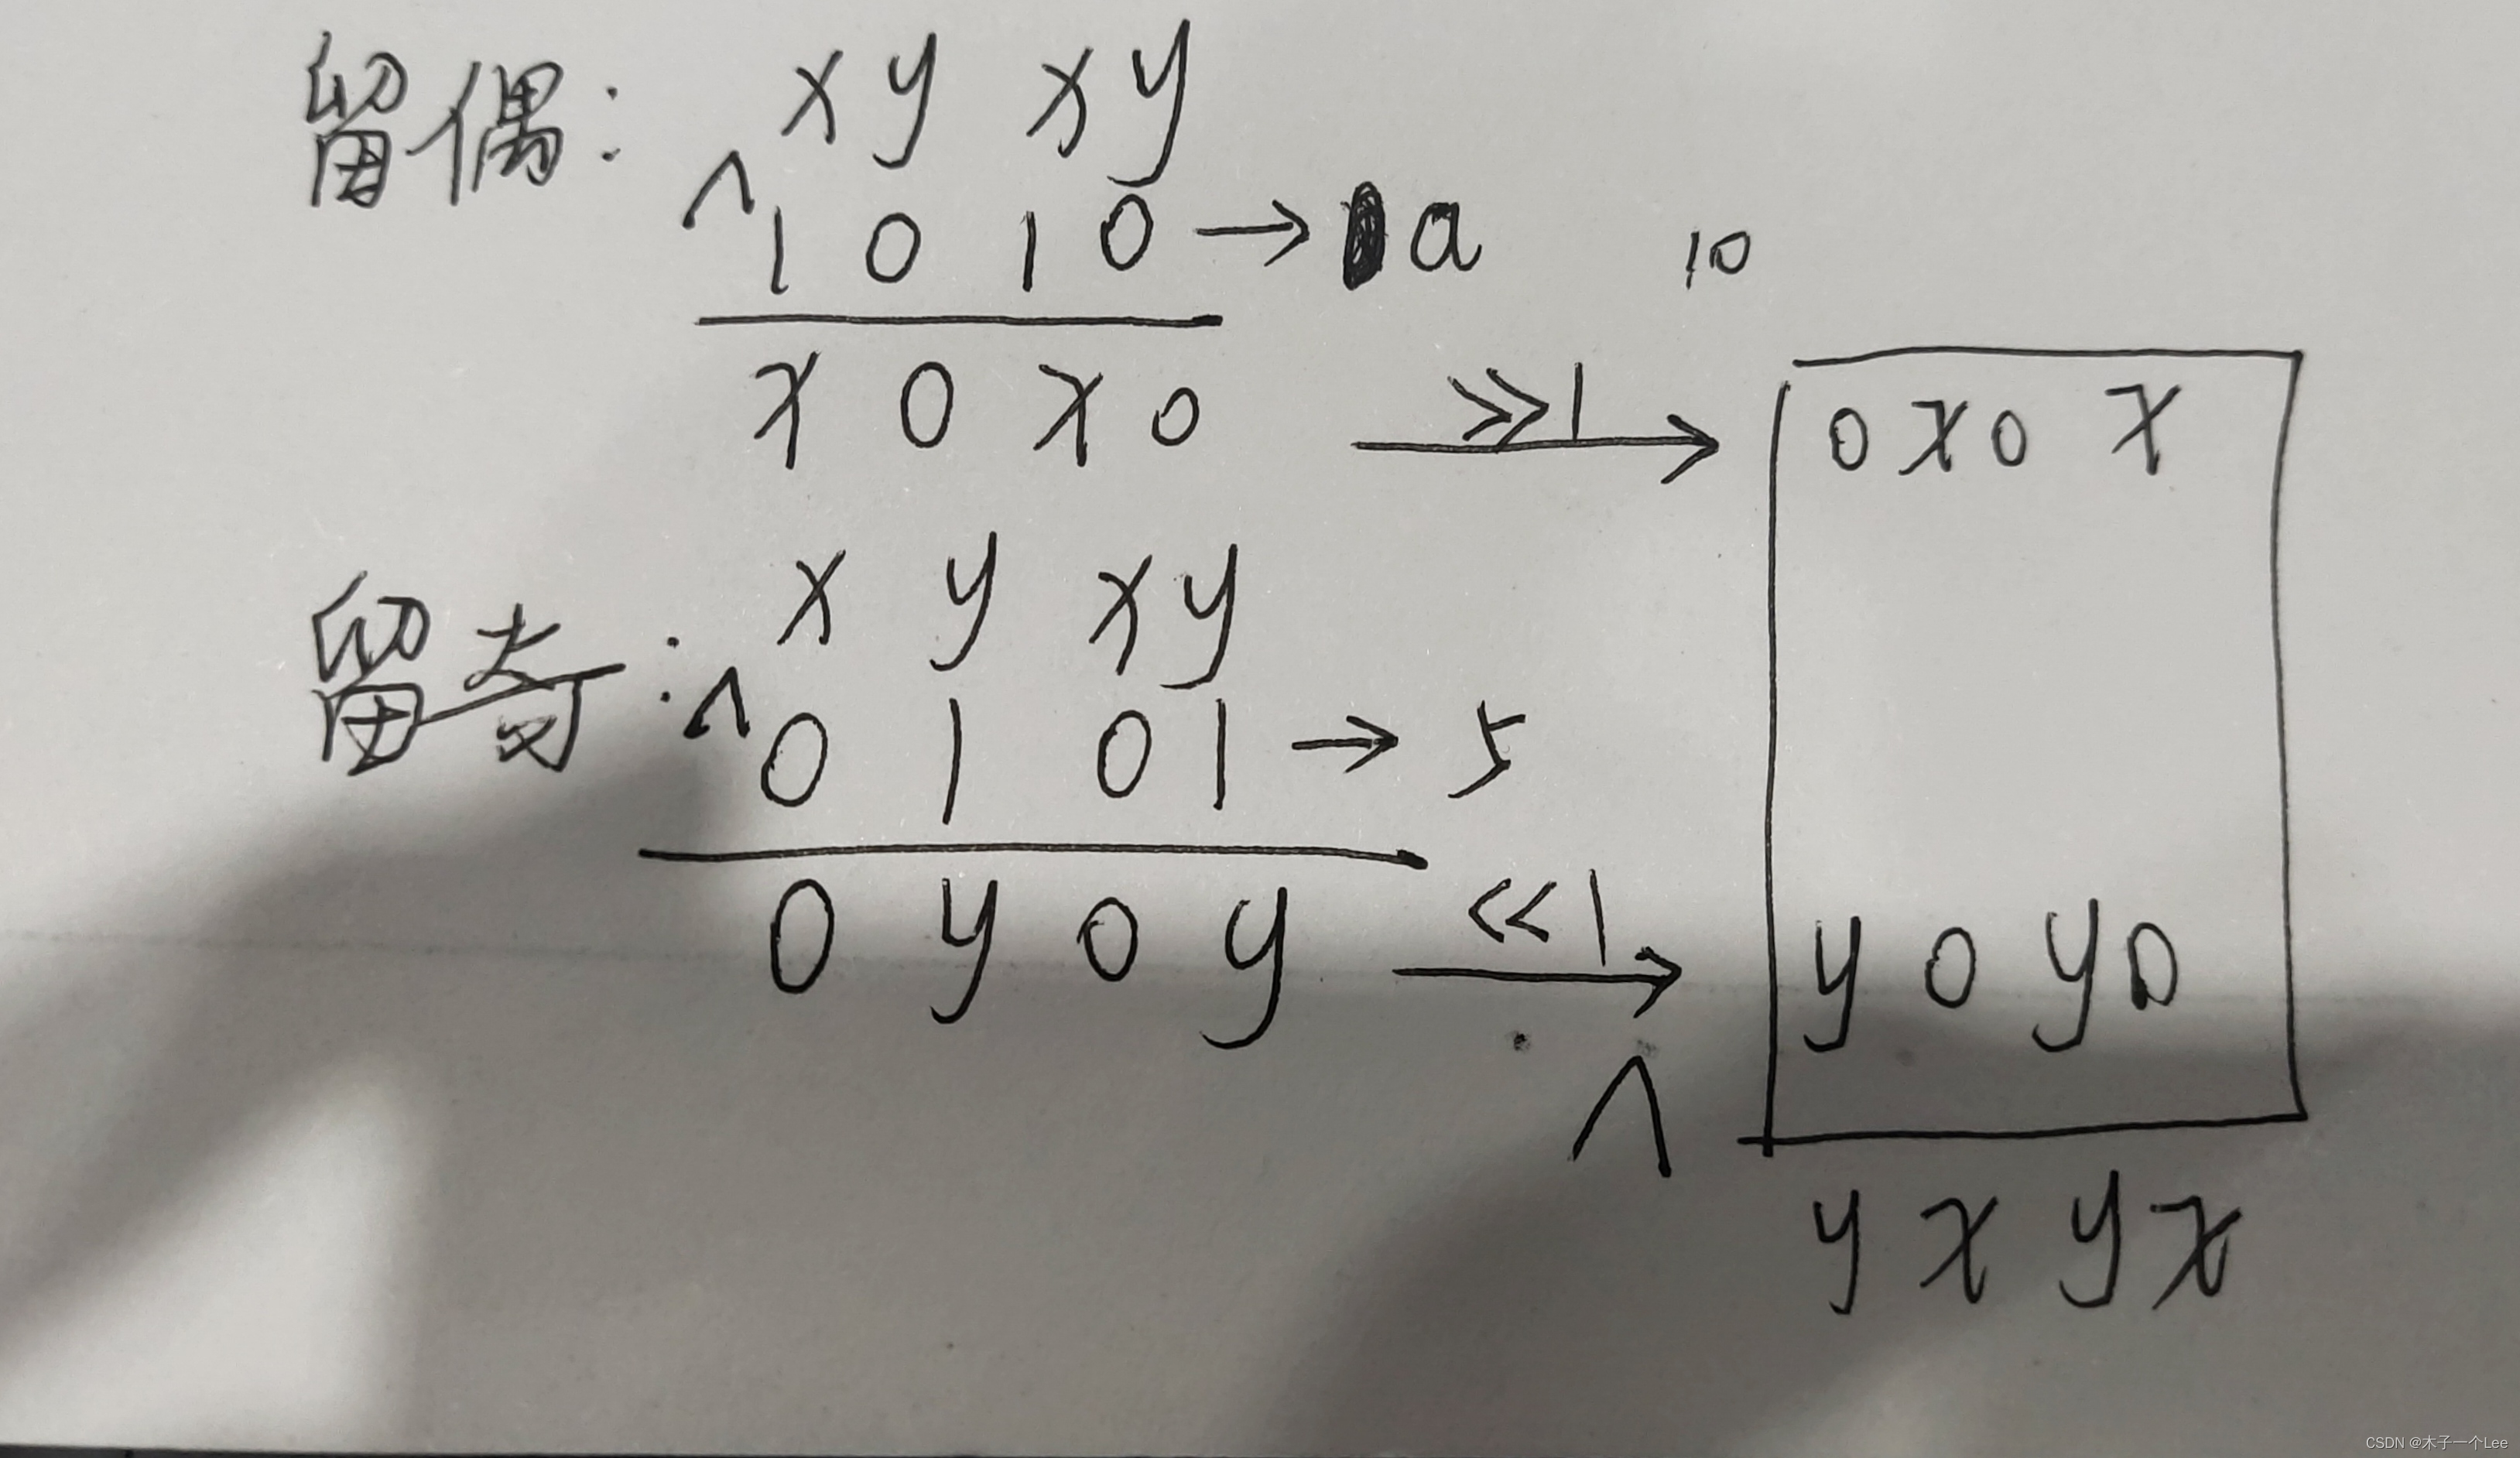 留偶: x y x y
^ 1 0 1 0 → a 10
x 0 x 0 >>1 → 0 x 0 x
留奇: x y x y
^ 0 1 0 1 → 5
0 y 0 y <<1 → y 0 y 0
^ y x y x
CSDN @木子一个Lee